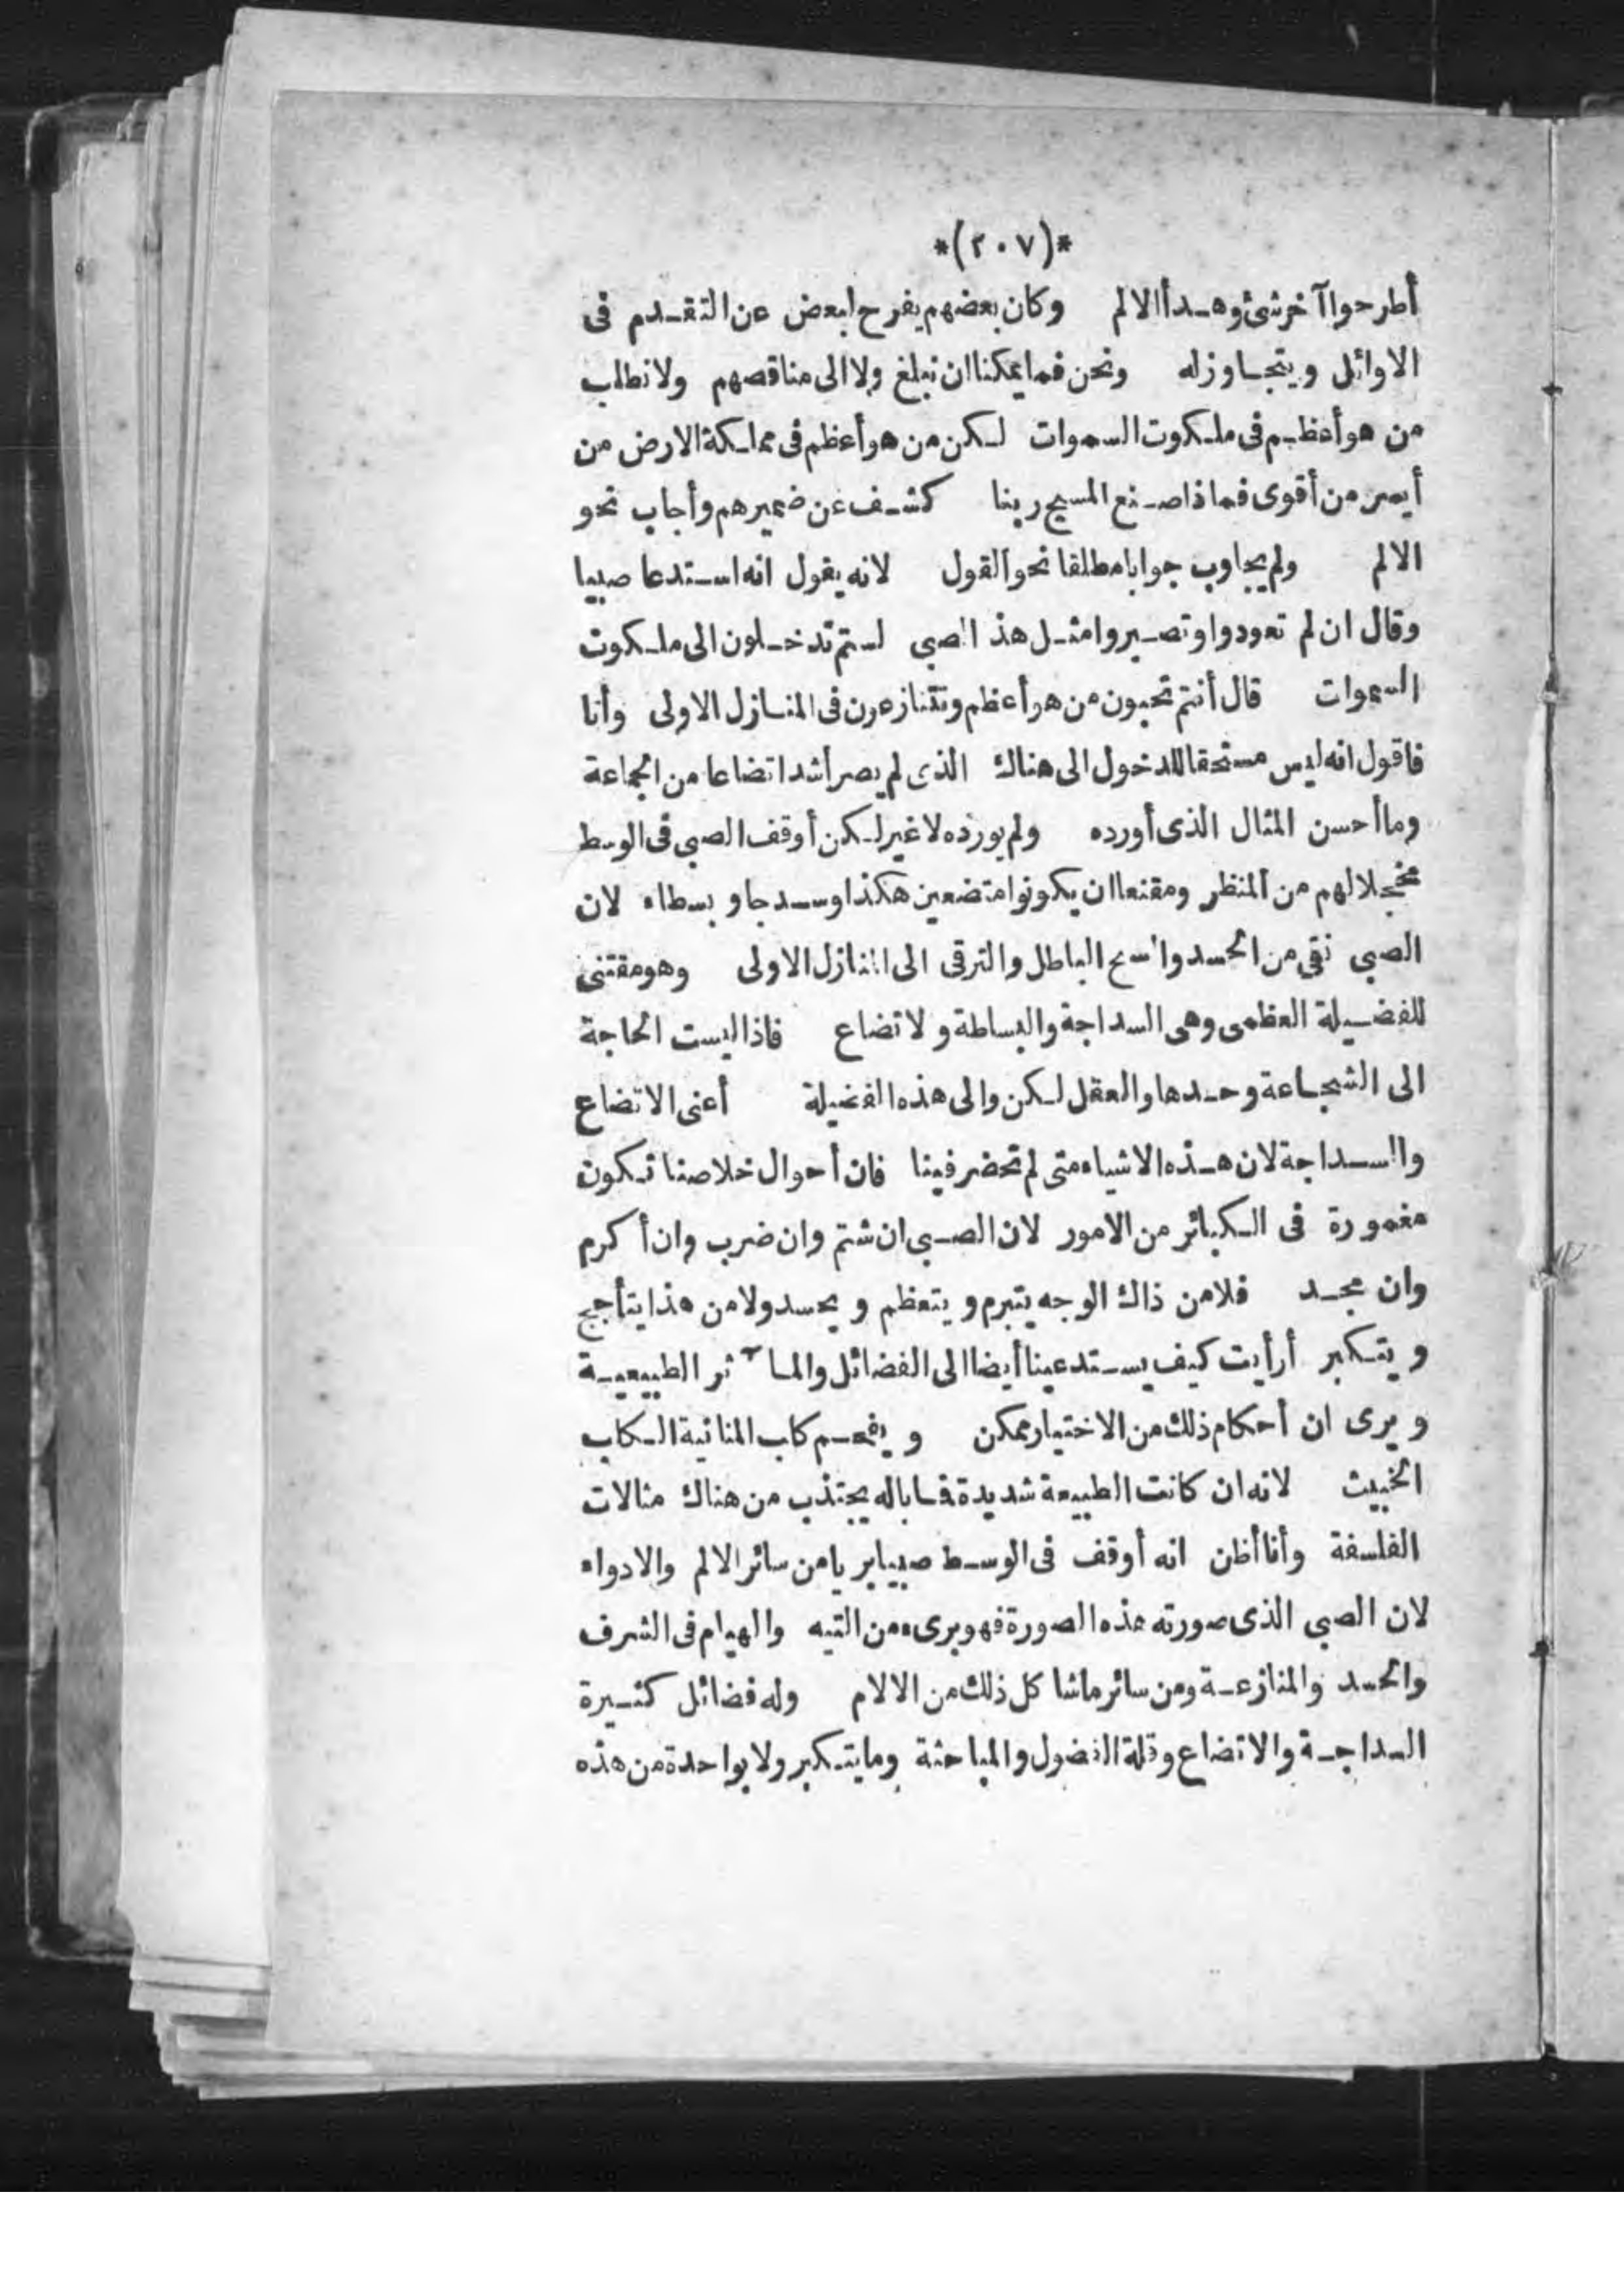 *(٢٠٧)*
أطرحوا آخر شئ وهدأ الالم وكان بعضهم يفرح لبعض عن التقدم فى
الاوائل ويتجاوز له ونحن فما يمكننا ان نبلغ ولا الى مناقصهم ولا نطلب
من هو أعظم فى ملكوت السموات لكن من هو أعظم فى مملكة الارض من
أيسر من أقوى فماذا صنع المسيح ربنا كشف عن ضميرهم وأجاب نحو
الالم ولم يجاوب جوابا مطلقا نحو القول لانه يقول انه استدعا صبيا
وقال ان لم تعودوا وتصيروا مثل هذ الصبى لستم تدخلون الى ملكوت
السموات قال أنتم تحبون من هو أعظم وتتنازعون فى المنازل الاولى وأنا
فاقول انه ليس مستحقا للدخول الى هناك الذى لم يصر أشد اتضاعا من الجماعة
وما أحسن المثال الذى أورده ولم يورده لا غير لكن أوقف الصبى فى الوسط
مخجلا لهم من المنظر ومقنعا ان يكونوا متضعين هكذا وسدجا و بسطاء لان
الصبى نقى من الحسد والسبح الباطل والترقى الى المنازل الاولى وهو مقتنى
للفضيلة العظمى وهى السداجة والبساطة و لاتضاع فاذا ليست الحاجة
الى الشجاعة وحدها والعقل لكن والى هذه الفضيلة أعنى الاتضاع
والسداجة لان هذه الاشياء متى لم تحضر فينا فان أحوال خلاصنا تكون
مغمورة فى الكبائر من الامور لان الصبى ان شتم وان ضرب وان أكرم
وان مجد فلا من ذاك الوجه يتبرم و يتعظم و يحسد ولا من هذا يتأجج
و يتكبر أرأيت كيف يستدعينا أيضا الى الفضائل والمآثر الطبيعية
و يرى ان أحكام ذلك من الاختيار ممكن و يفحم كاب المنانية الكاب
الخبيث لانه ان كانت الطبيعة شديدة فما باله يجتذب من هناك مثالات
الفلسفة وأنا أظن انه أوقف فى الوسط صبيا بريا من سائر الالم والادواء
لان الصبى الذى صورته هذه الصورة فهو برىء من التيه والهيام فى الشرف
والحسد والمنازعة ومن سائر ماشا كل ذلك من الالام وله فضائل كثيرة
السداجة والاتضاع وقلة الفضول والمباحثة وما يتكبر ولا بواحدة من هذه